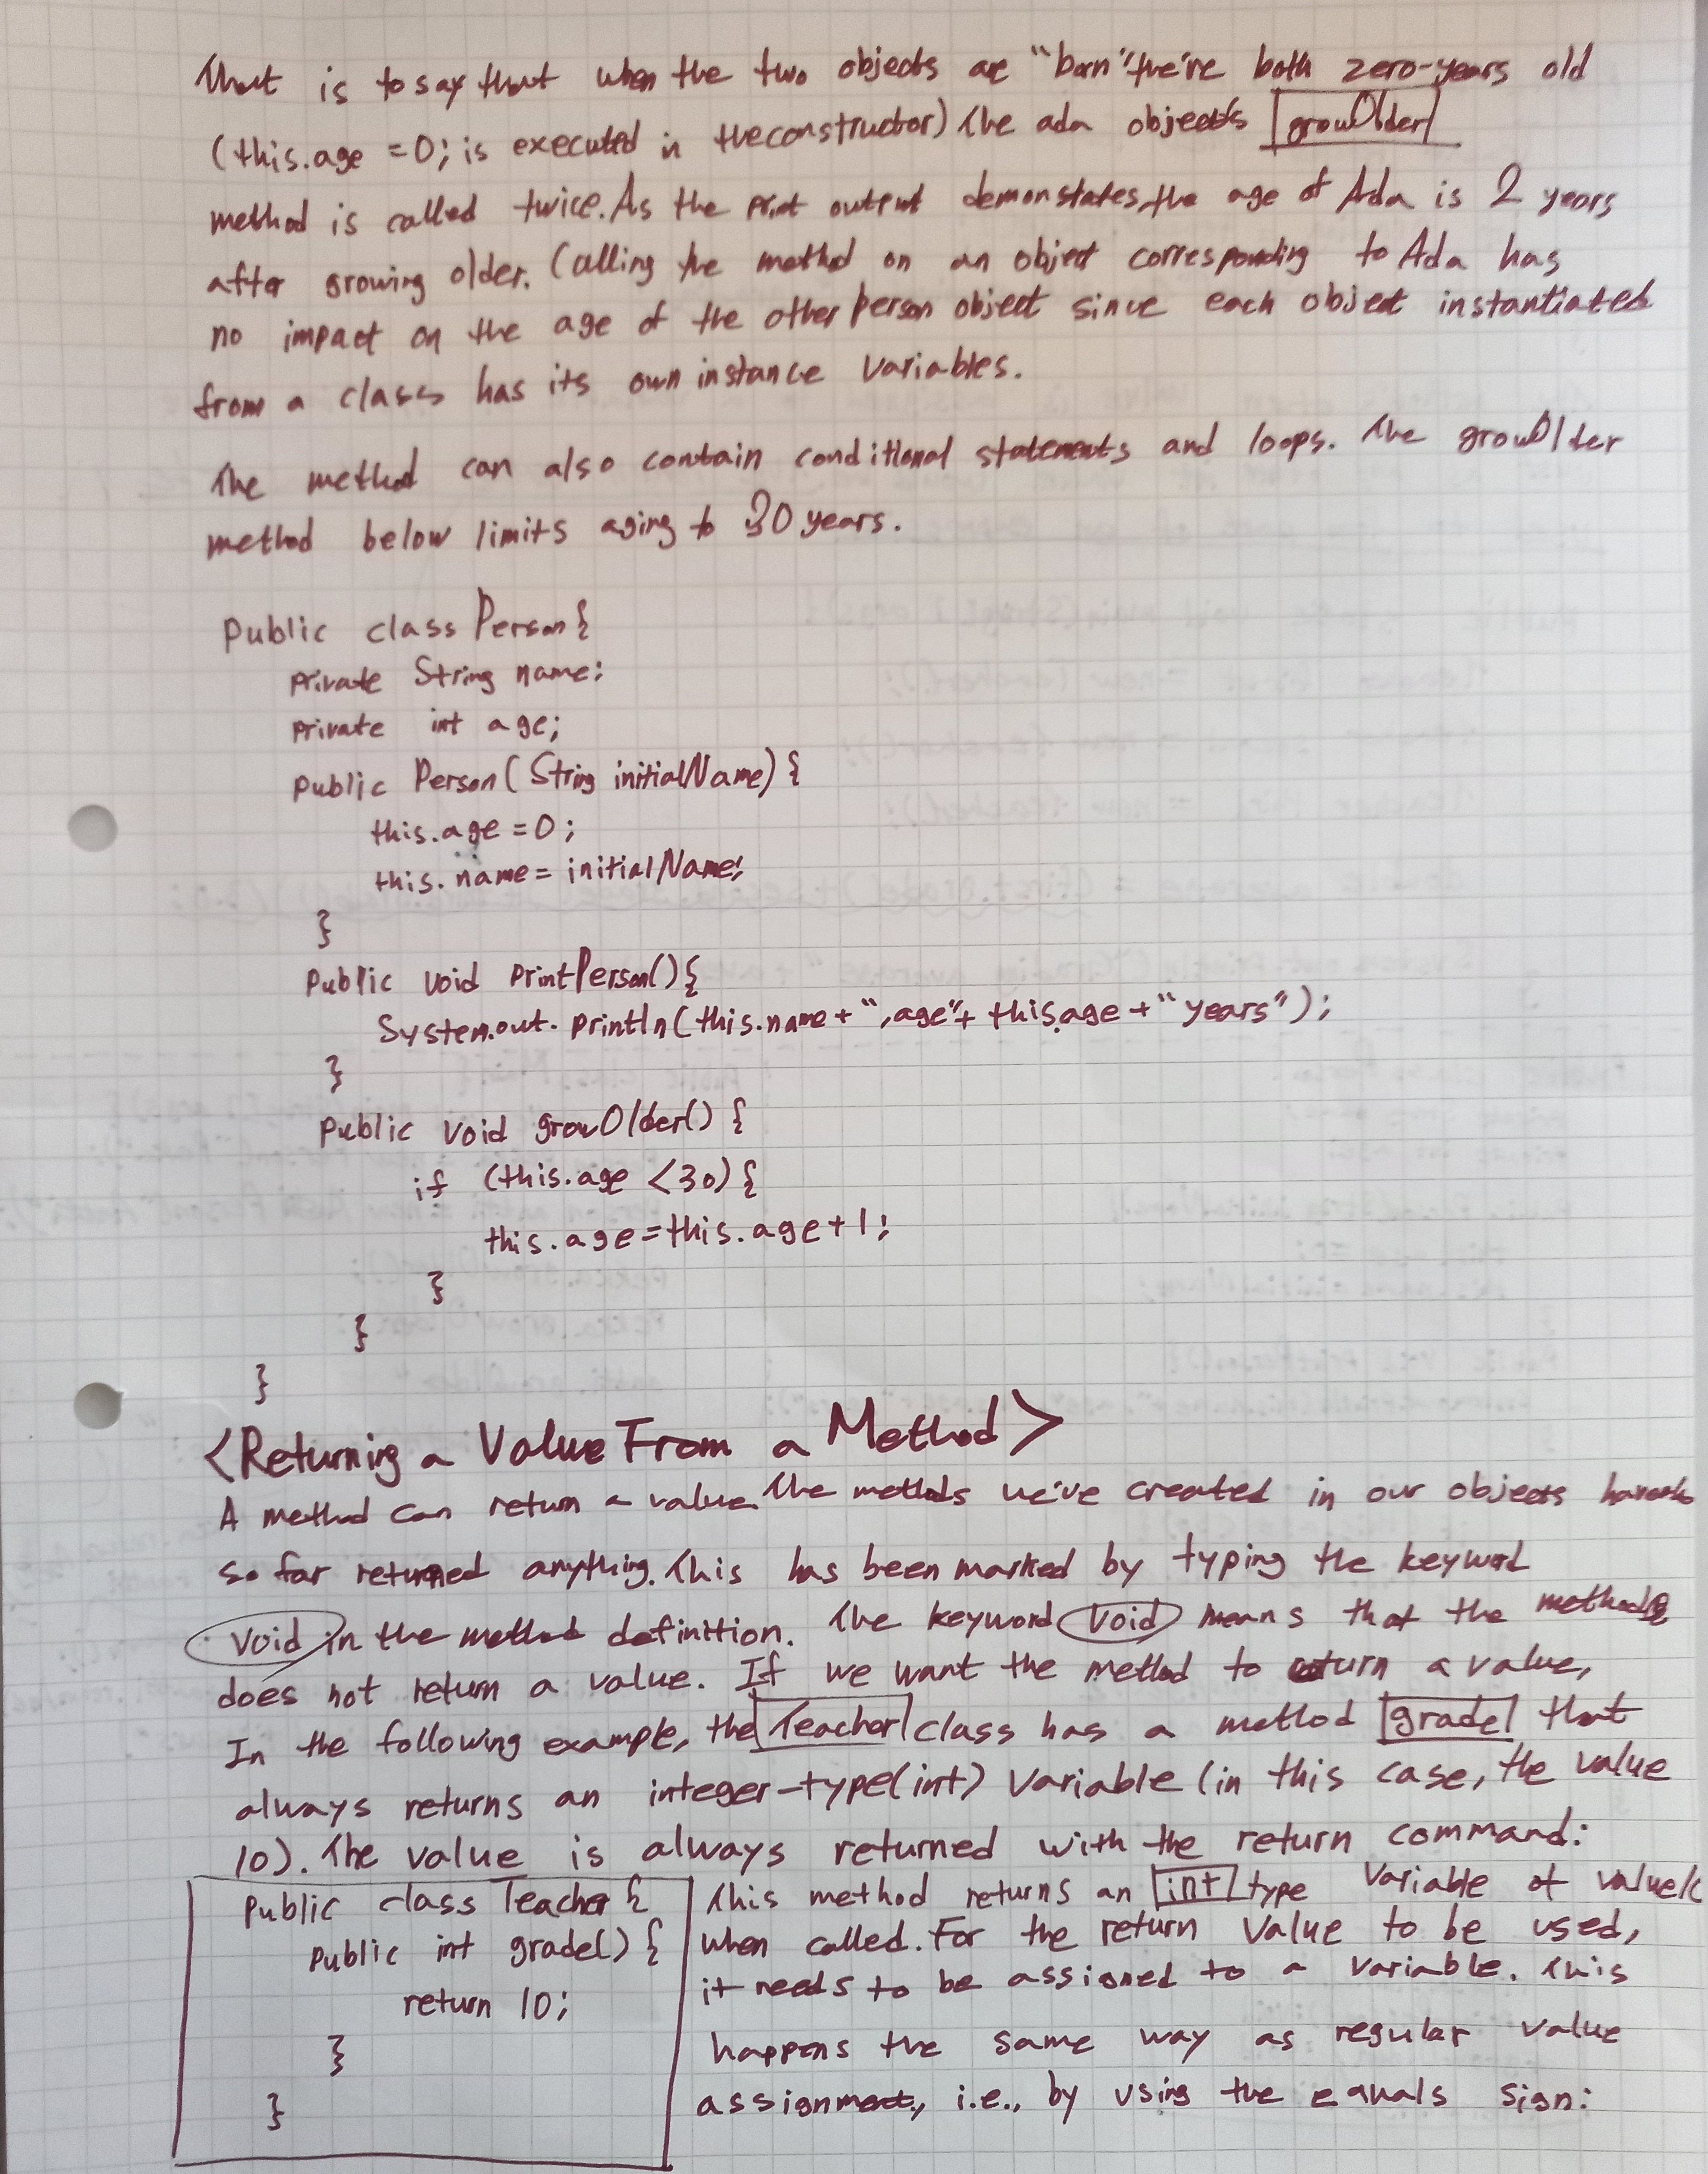 That is to say that when the two objects are "born" the're both zero-years old
(this.age = 0; is executed in the constructor) The ada object's growOlder
method is called twice. As the print output demonstates, the age of Ada is 2 years
after growing older. Calling the method on an object corresponding to Ada has
no impact on the age of the other Person object since each object instantiated
from a class has its own instance variables.
The method can also contain conditional statements and loops. The growOlder
method below limits aging to 30 years.
Public class Person{
Private String name;
Private int age;
Public Person(String initialName){
this.age = 0;
this.name = initialName;
}
Public void PrintPerson(){
System.out.println(this.name + ", age" + this.age + "years");
}
Public void growOlder() {
if (this.age < 30) {
this.age = this.age + 1;
}
}
}
<Returning a Value From a Method>
A method can return a value. The methods we've created in our objects haven't
so far returned anything. This has been marked by typing the keyword
void in the method definition. The keyword void means that the method
does not return a value. If we want the method to return a value,
In the following example, the Teacher class has a method grade that
always returns an integer-type(int) variable (in this case, the value
10). The value is always returned with the return command:
Public class Teacher {
Public int grade() {
return 10;
}
}
This method returns an int type variable of value
when called. For the return value to be used,
it needs to be assigned to a variable. This
happens the same way as regular value
assignment, i.e., by using the equals sign: